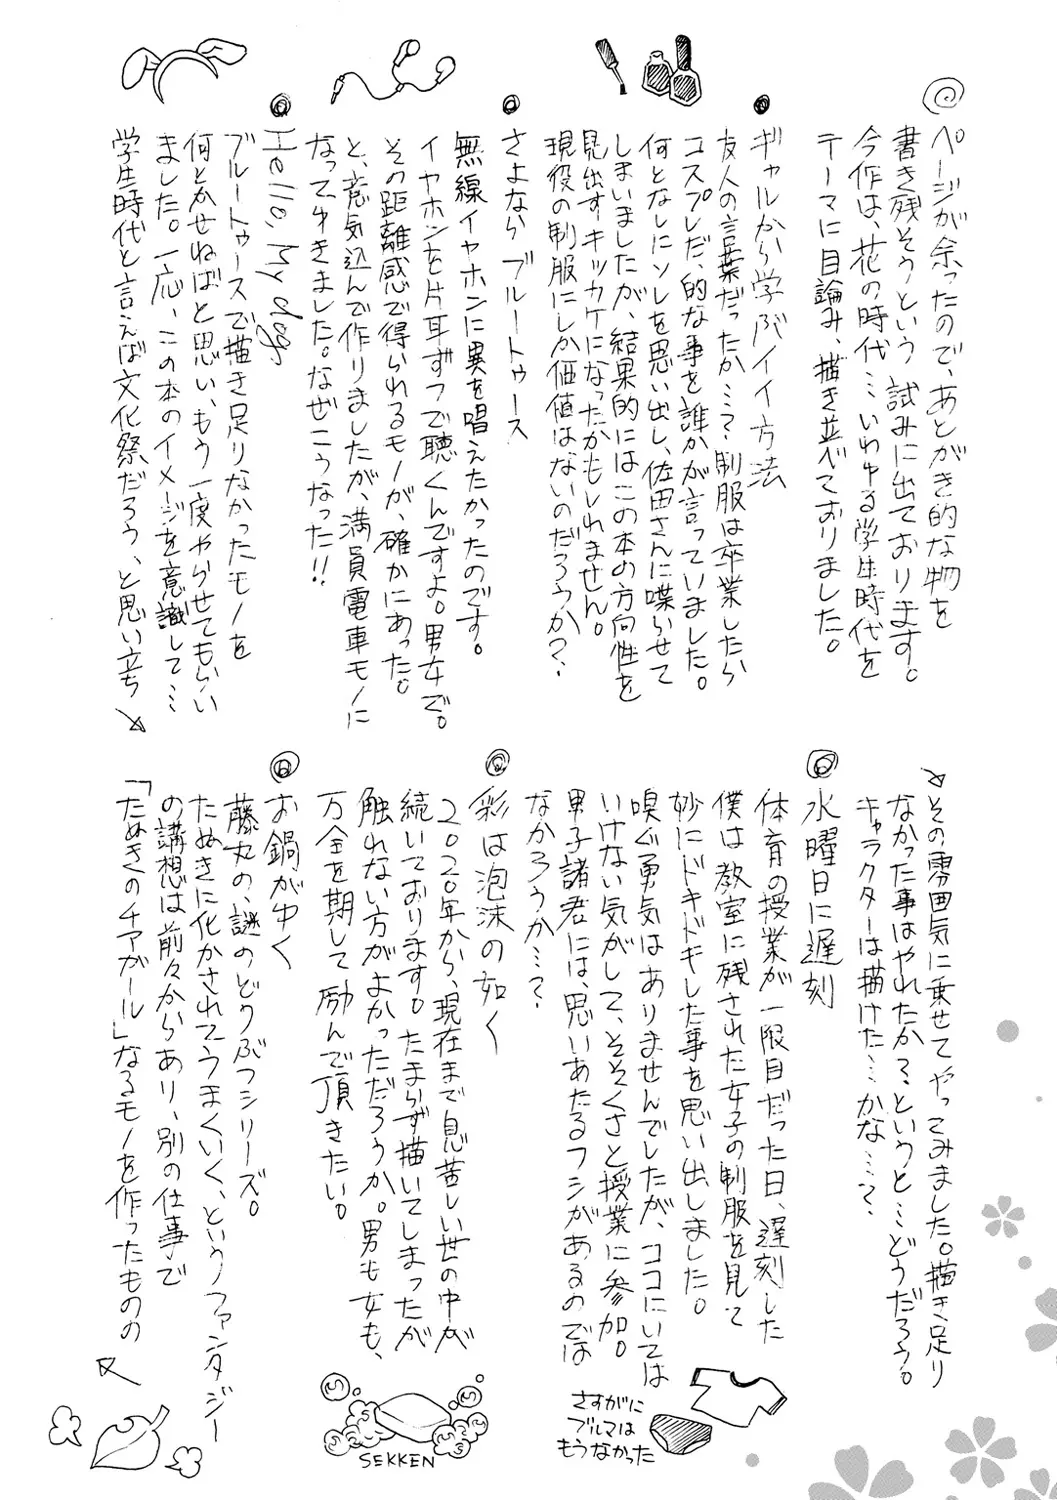 ページが余ったので、あとがき的な物を
書き残そうという試みに出ております。
今作は、花の時代…いわゆる学生時代を
テーマに目論み、描き並べておりました。
ギャルから学ぶイイ方法
友人の言葉だったか…?制服は卒業したら
コスプレだ、的な事を誰かが言っていました。
何となしにソレを思い出し、佐田さんに喋らせて
しまいましたが、結果的にはこの本の方向性を
見出すキッカケになったかもしれません。
現役の制服にしか価値はないのだろうか?
さよなら ブルートゥース
無線イヤホンに異を唱えたかったのです。
イヤホンを片耳ずつで聴くんですよ。男女で。
その距離感で得られるモノが、確かにあった。
と、意気込んで作りましたが、満員電車モノに
なってゆきました。なぜこうなった!!
Hello, My dog
ブルートゥースで描き足りなかったモノを
何とかせねばと思い、もう一度やらせてもらい
ました。一応、この本のイメージを意識して…
学生時代と言えば文化祭だろう、と思い立ち
その雰囲気に乗せてやってみました。描き足り
なかった事はやれたかろ、というと…どうだろう。
キャラクターは描けた…かな…?
水曜日に遅刻
体育の授業が一限目だった日、遅刻した
僕は教室に残された女子の制服を見て
妙にドキドキした事を思い出しました。
嗅ぐ勇気はありませんでしたが、ココにいては
いけない気がして、そそくさと授業に参加。
男子諸君には、思いあたるフシがあるのでは
なかろうか…?
さすがに
ブルマは
もうなかった
彩は泡沫の如く
2020年から、現在まで息苦しい世の中が
続いております。たまらず描いてしまったが
触れない方がよかっただろうか。男も女も、
万全を期して励んで頂きたい。
SEKKEN
お鍋がゆく
藤丸の、謎のどうぶつシリーズ。
たぬきに化かされてうまくいく、というファンタジー
の講想は前々からあり、別の仕事で
「たぬきのチアガール」なるモノを作ったものの